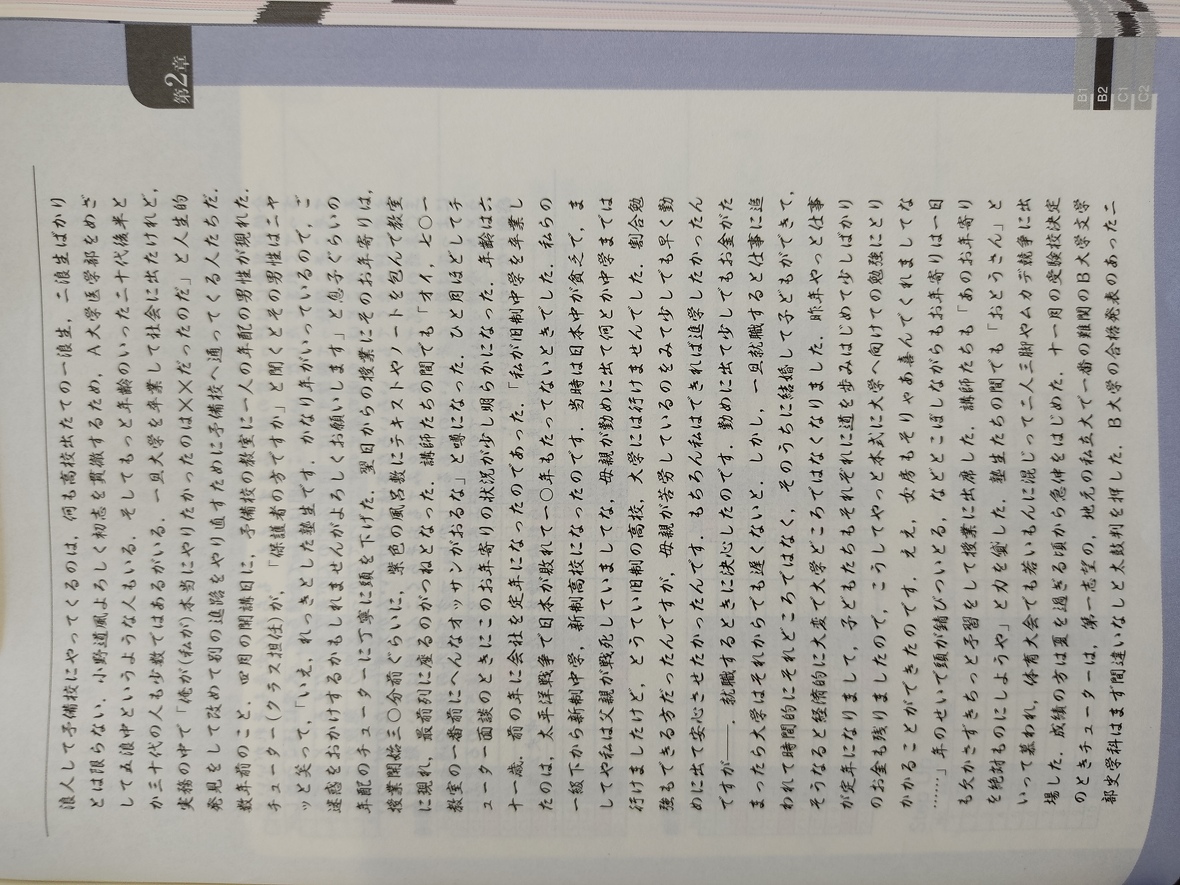 第2章
B1
B2
C1
C2
浪人して予備校にやってくるのは、何も高校出たての一浪生、二浪生ばかり
とは限らない。小野道風よろしく初志を貫徹するため、A大学医学部をめざ
して五浪中というような人もいる。そしてもっと年齢のいった二十代後半と
か三十代の人も少数ではあるがいる。一旦大学を卒業して社会に出たけれど、
実務の中で「俺が(私が)本当にやりたかったのは××だったのだ」と人生的
発見をして改めて別の進路をやり直すために予備校へ通ってくる人たちだ。
数年前のこと、四月の開講日に、予備校の教室に一人の年配の男性が現れた。
チューター(クラス担任)が、「保護者の方ですか」と聞くとその男性はニヤ
ッと笑って、「いえ、れっきとした塾生です。かなり年がいっているので、ご
迷惑をおかけするかもしれませんがよろしくお願いします」と息子ぐらいの
年配のチューターに丁寧に頭を下げた。翌日からの授業にそのお年寄りは、
授業開始三〇分前ぐらいに、紫色の風呂敷にテキストやノートを包んで教室
に現れ、最前列に座るのがつねとなった。講師たちの間でも「オイ、七〇一
教室の一番前にへんなオッサンがおるな」と噂になった。ひと月ほどしてチ
ューター面談のときにこのお年寄りの状況が少し明らかになった。年齢は六
十一歳。前の年に会社を定年になったのであった。「私が旧制中学を卒業し
たのは、太平洋戦争で日本が敗れて一〇年もたってないときでした。私らの
一級下から新制中学、新制高校になったのです。当時は日本中が貧乏で、ま
してや私は父親が戦死していましてな、母親が勤めに出て何とか中学までは
行けましたけど、とうてい旧制の高校、大学には行けませんでした。割合勉
強もできる方だったんですが、母親が苦労しているのをみて少しでも早く勤
めに出て安心させたかったんです。もちろん私はできれば進学したかったん
ですが――。就職するときに決心したのです。勤めに出て少しでもお金がた
まったら大学はそれからでも遅くないと。しかし、一旦就職すると仕事に追
われて時間的にそれどころではなく、そのうちに結婚して子どもができて、
そうなると経済的に大変で大学どころではなくなりました。昨年やっと仕事
が定年になりまして、子どもたちもそれぞれに道を歩みはじめて少しばかり
のお金も残りましたので、こうしてやっと本式に大学へ向けての勉強にとり
かかることができたのです。ええ、女房もそりゃあ喜んでくれましてな
……」年のせいで頭が錆びついとる、などとこぼしながらもお年寄りは一日
も欠かさずきちっと予習をして授業に出席した。講師たちも「あのお年寄り
を絶対ものにしようや」と力を傾した。塾生たちの間でも「おとうさん」と
いって慕われ、体育大会でも若いもんに混じって二人三脚やムカデ競争に出
場した。成績の方は夏を過ぎる頃から急伸をはじめた。十一月の受験校決定
のときチューターは、第一志望の、地元の私立大で一番の難関のB大学文学
部史学科はまず間違いなしと太鼓判を押した。B大学の合格発表のあった二